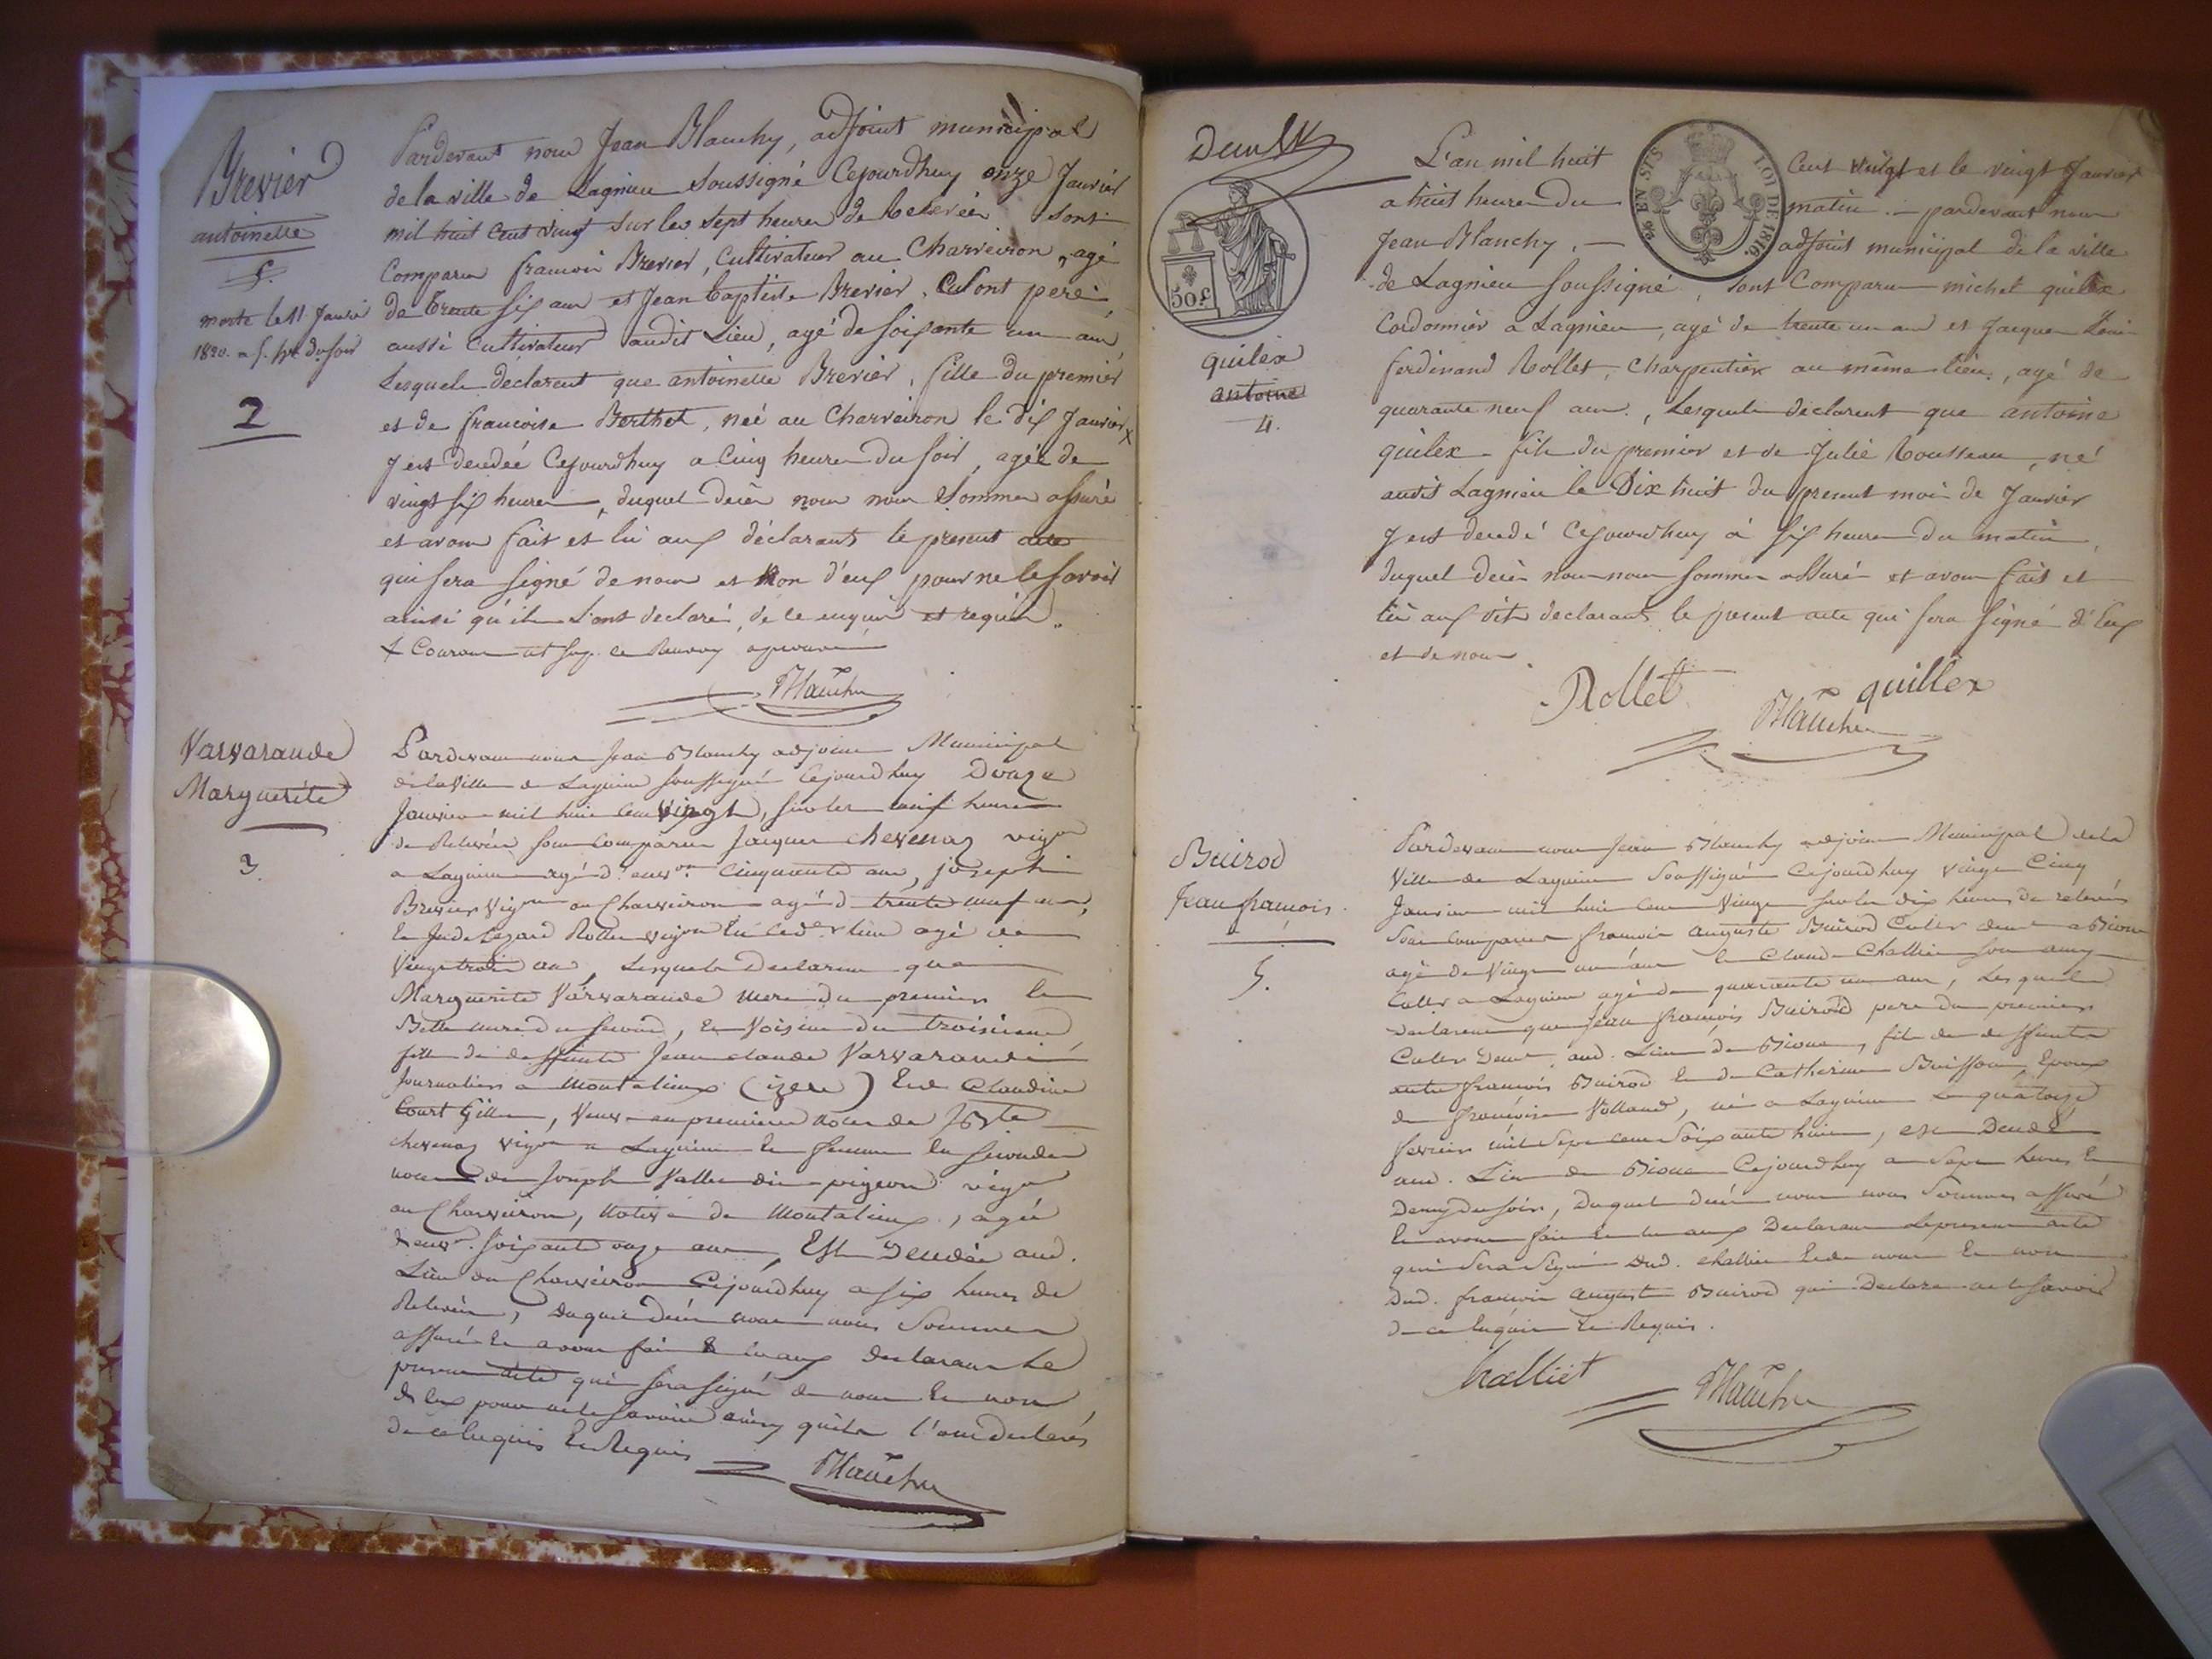 Brevier
antoinette
f.
morte le 11 Janvier
1820. a 5. hes. du soir
2
Pardevant nous Jean Blanchy, adjoint municipal
de la ville de Lagnieu soussigné Cejourdhuy onze Janvier
mil huit cent vingt sur les sept heures de Relevée sont
Comparus francois Brevier, Cultivateur au Charveiron, agé
de trente six ans et Jean baptiste Brevier, son pere
aussi Cultivateur audit Lieu, agé de soixante un ans
Lesquels declarent que antoinette Brevier, fille du premier
et de francoise Berthet, neé au Charveiron le dix Janvier x
y est decedeé Cejourdhuy a Cinq heures du soir, agée de
vingt six heures, duquel decès nous nous sommes assuré
et avons fait et lû aux déclarants le present acte
qui sera signé de nous et non d'eux pour ne le savoir
ainsi qu'ils l'ont declaré, de ce enquis et requis.
x Courant
Blanchy
Varvarande
Marguerite
3.
Pardevant nous Jean Blanchy adjoint Municipal
de la Ville de Lagnieu soussigné Cejourdhuy Douze
Janvier mil huit cent vingt, sur les neuf heures
de Relevée sont Comparus Jacques chevenas vigon
a Lagnieu agé d'envon Cinquante ans, joseph
Brevier Vigon au Charveiron agé de trente neuf ans,
Rollet vigon agé de
Vingt trois ans, Lesquels Declarent que
Marguerite Varvarande mere du premier
Belle mere du second, et Voisine du troisieme
fille de deffunts Jean claude Varvarande
Journalier a Montalieux (izere) Et de Claudine
Court Gillet, Veuve en premieres noces de
chevenas vigon a Lagnieu et femme en secondes
noces de Joseph Vallet dit pigeon vigon
au Charveiron, Native de Montalieux, agée
d'envon. soixante onze ans, Est Decedée aud.
Lieu du Charveiron Cejourdhuy a six heures de
Relevée, duquel decès nous nous sommes
assuré et avons fait et lû aux declarants Le
present acte qui sera signé de nous et non
d'eux pour ne le savoir ainsy qu'ils l'ont declarés
de ce Enquis Et Requis
Blanchy
Deux
96 EN SUS
LOI DE 1816.
50 c
quilex
antoine
4.
L'an mil huit Cent vingt et le vingt Janvier
a huit heures du matin. pardevant nous
Jean Blanchy, adjoint municipal de la ville
de Lagnieu soussigné, sont Comparus michel quilex
Cordonnier a Lagnieu, agé de trente un ans et Jacques Louis
ferdinand Rollet, Charpentier au même lieu, agé de
quarante neuf ans, Lesquels declarent que antoine
quilex fils du premier et de Julie Rousseau, né
audit Lagnieu le Dix huit du present mois de Janvier
y est decedé Cejourdhuy à six heures du matin,
duquel decès nous nous sommes assuré et avons fait et
lû aux dits declarants le present acte qui sera signé d'eux
et de nous.
Rollet
quillex
Blanchy
Buirod
Jean francois
5.
Pardevant nous Jean Blanchy adjoint Municipal de la
Ville de Lagnieu Soussigné Cejourdhuy vingt Cinq
Janvier mil huit cent Vingt sur les dix heures de relevée
sont Comparus francois auguste Buirod Culter
agé de Vingt un ans et Claude Challiet son amy
Culter a Lagnieu agé de quarante un ans, Lesquels
Declarent que Jean francois Buirod pere du premier
Culter aud. Lieu de, fils de deffunts
francois Buirod et de Catherine Buisson, Epoux
de francoise Volland, né a Lagnieu Le quatorze
fevrier mil Sept cent Soixante huit, est Decedé
aud. Lieu de Cejourdhuy a Sept heures Et
Demy du soir, Duquel decès nous nous Sommes assuré
Et avons fait Et lu aux Declarants Le present acte
qui Sera Signé Dud. challiet Et de nous Et non
Dud. francois auguste Buirod qui Declare ne le savoir
de ce Enquis Et Requis.
Challiet
Blanchy